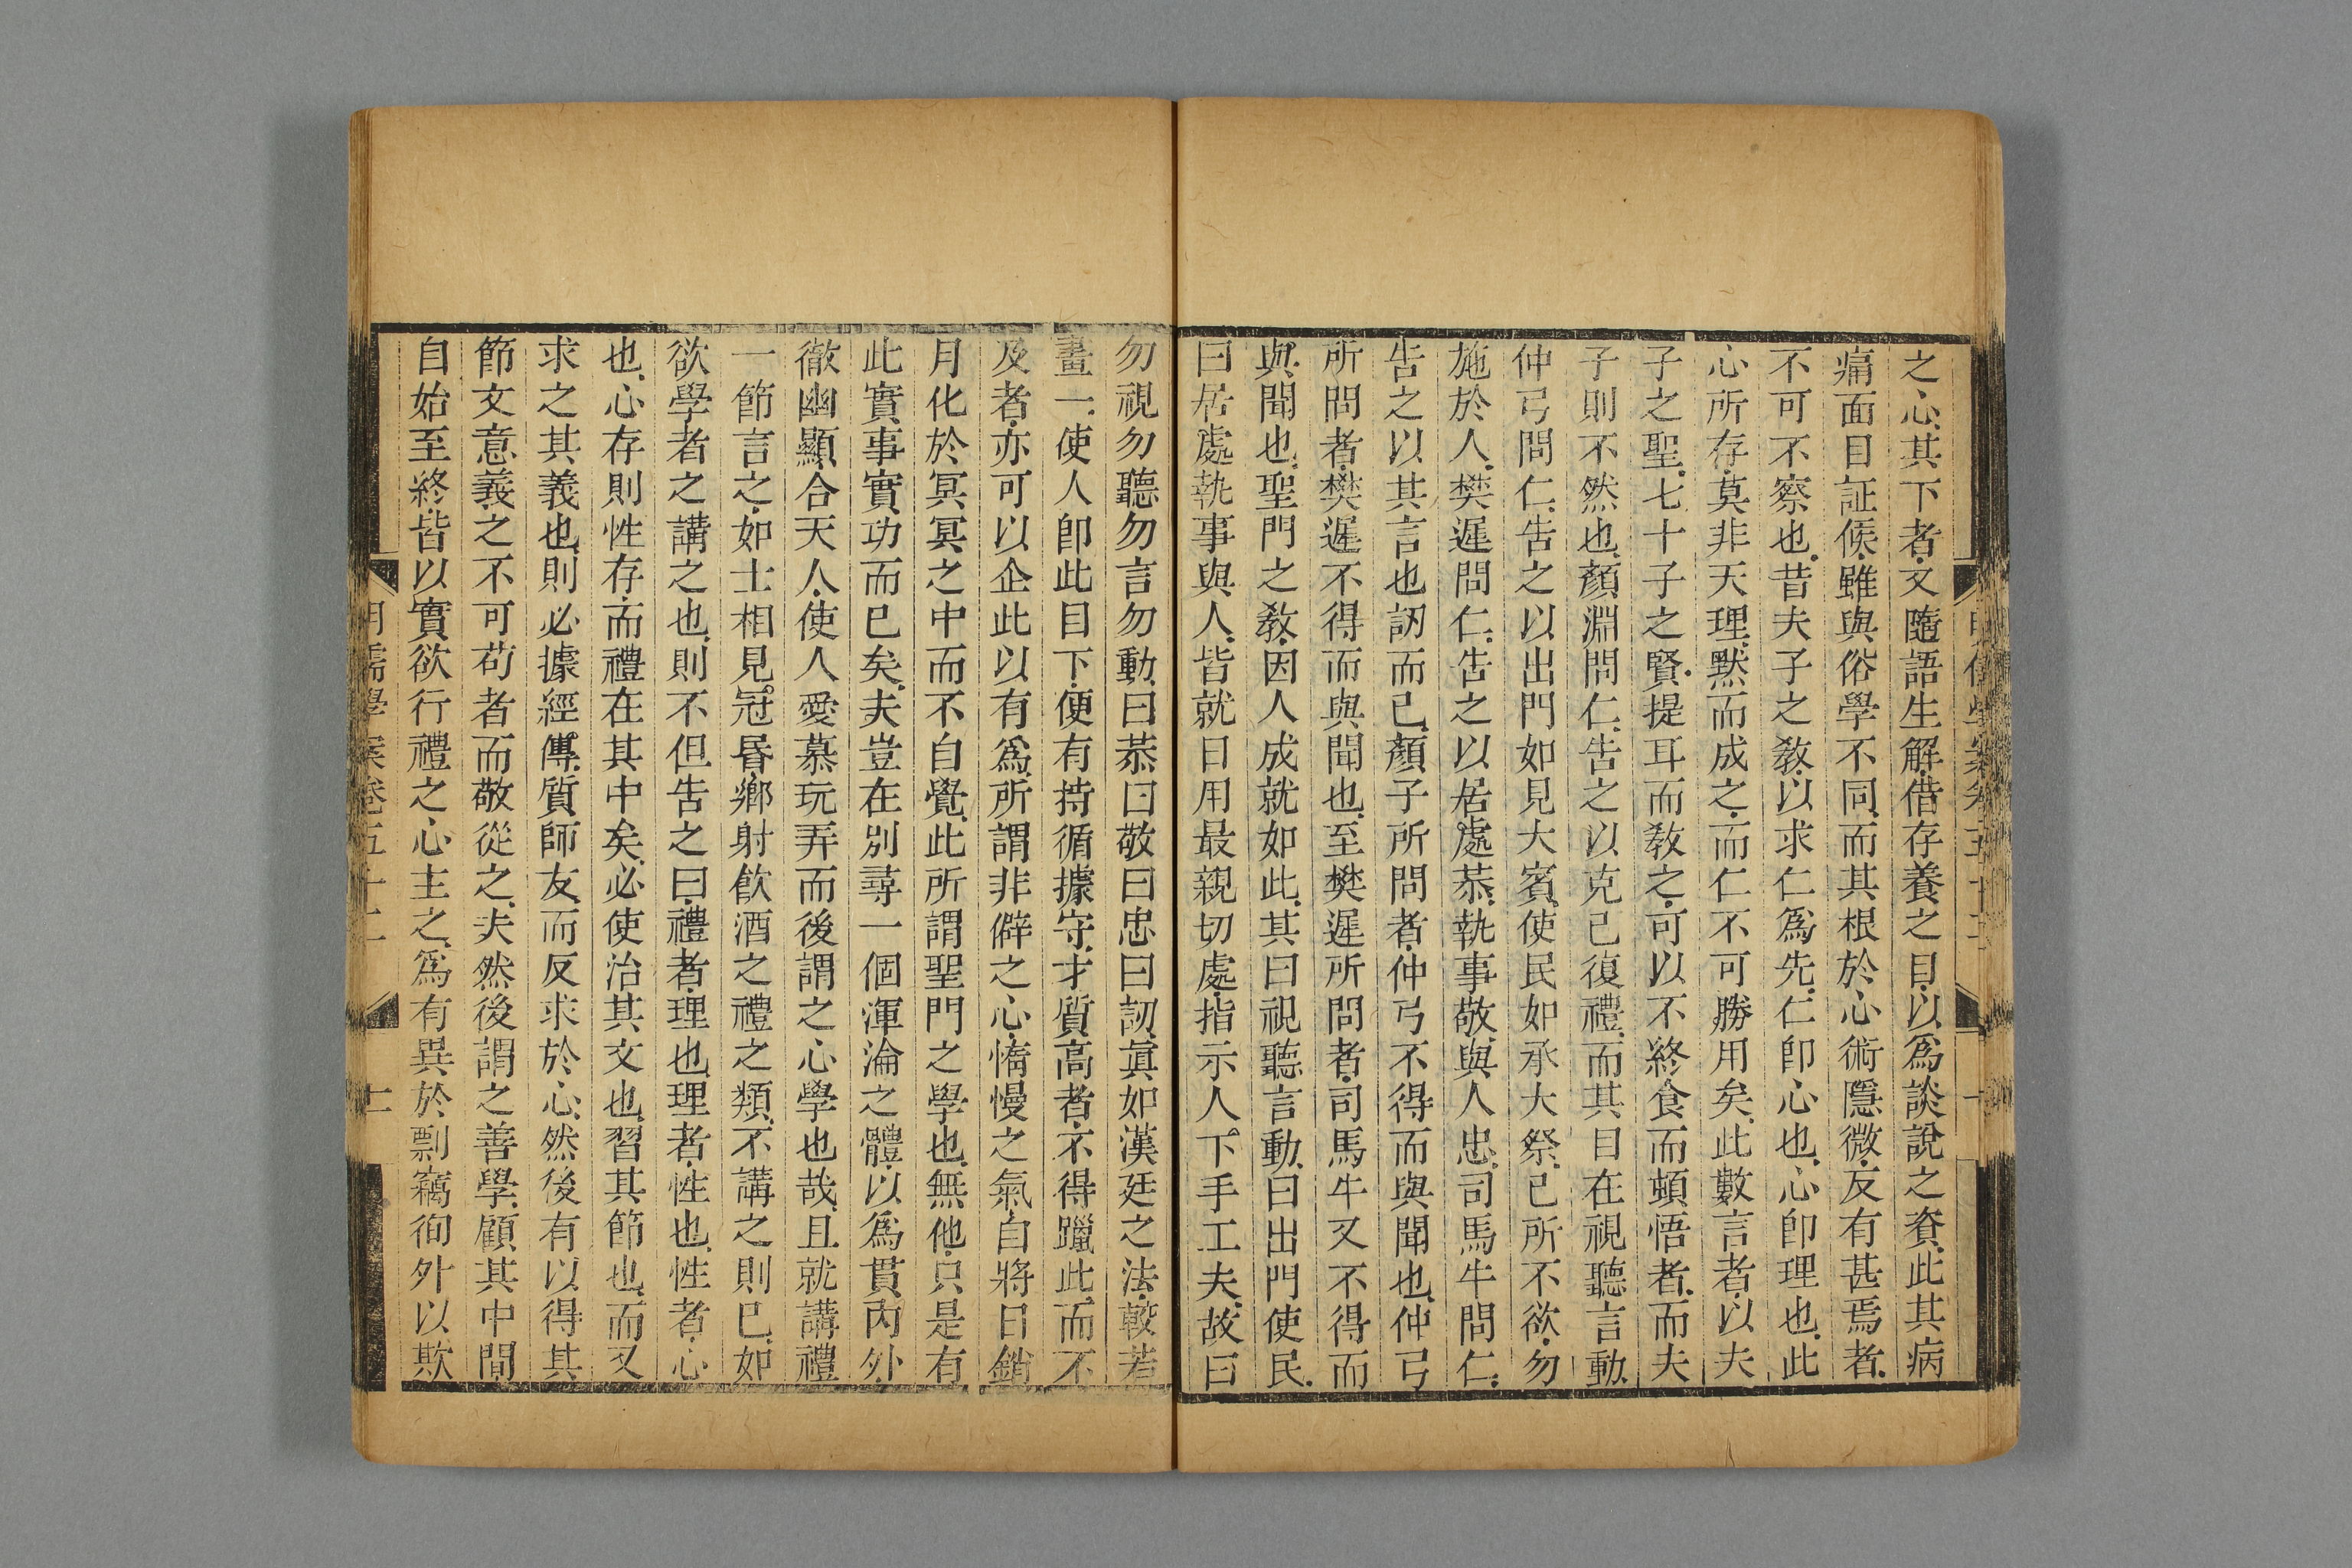 之心其下者又隨語生解借存養之目以爲談說之資此其病
痛面目証候雖與俗學不同而其根於心術隱微反有甚焉者
不可不察也昔夫子之敎以求仁爲先仁卽心也心卽理也此
心所存莫非天理默而成之而仁不可勝用矣此數言者以夫
子之聖七十子之賢提耳而敎之可以不終食而頓悟者而夫
子則不然也顏淵問仁告之以克己復禮而其目在視聽言動
仲弓問仁告之以出門如見大賓使民如承大祭己所不欲勿
施於人樊遲問仁告之以居處恭執事敬與人忠司馬牛問仁
告之以其言也訒而已顏子所問者仲弓不得而與聞也仲弓
所問者樊遲不得而與聞也至樊遲所問者司馬牛又不得而
與聞也聖門之敎因人成就如此其曰視聽言動曰出門使民
曰居處執事與人皆就日用最親切處指示人下手工夫故曰
勿視勿聽勿言勿動曰恭曰敬曰忠曰訒眞如漢廷之法較若
畫一使人卽此目下便有持循據守才質高者不得躐此而不
及者亦可以企此以有爲所謂非僻之心惰慢之氣自將日銷
月化於冥冥之中而不自覺此所謂聖門之學也無他只是有
此實事實功而已矣夫豈在別尋一個渾淪之體以爲貫內外
徹幽顯合天人使人愛慕玩弄而後謂之心學也哉且就講禮
一節言之如士相見冠昏鄉射飮酒之禮之類不講之則已如
欲學者之講之也則不但告之曰禮者理也理者性也性者心
也心存則性存而禮在其中矣必使治其文也習其節也而又
求之其義也則必據經傳質師友而反求於心然後有以得其
節文意義之不可苟者而敬從之夫然後謂之善學顧其中間
自始至終皆以實欲行禮之心主之爲有異於剽竊徇外以欺
明儒學案卷五十二 十一